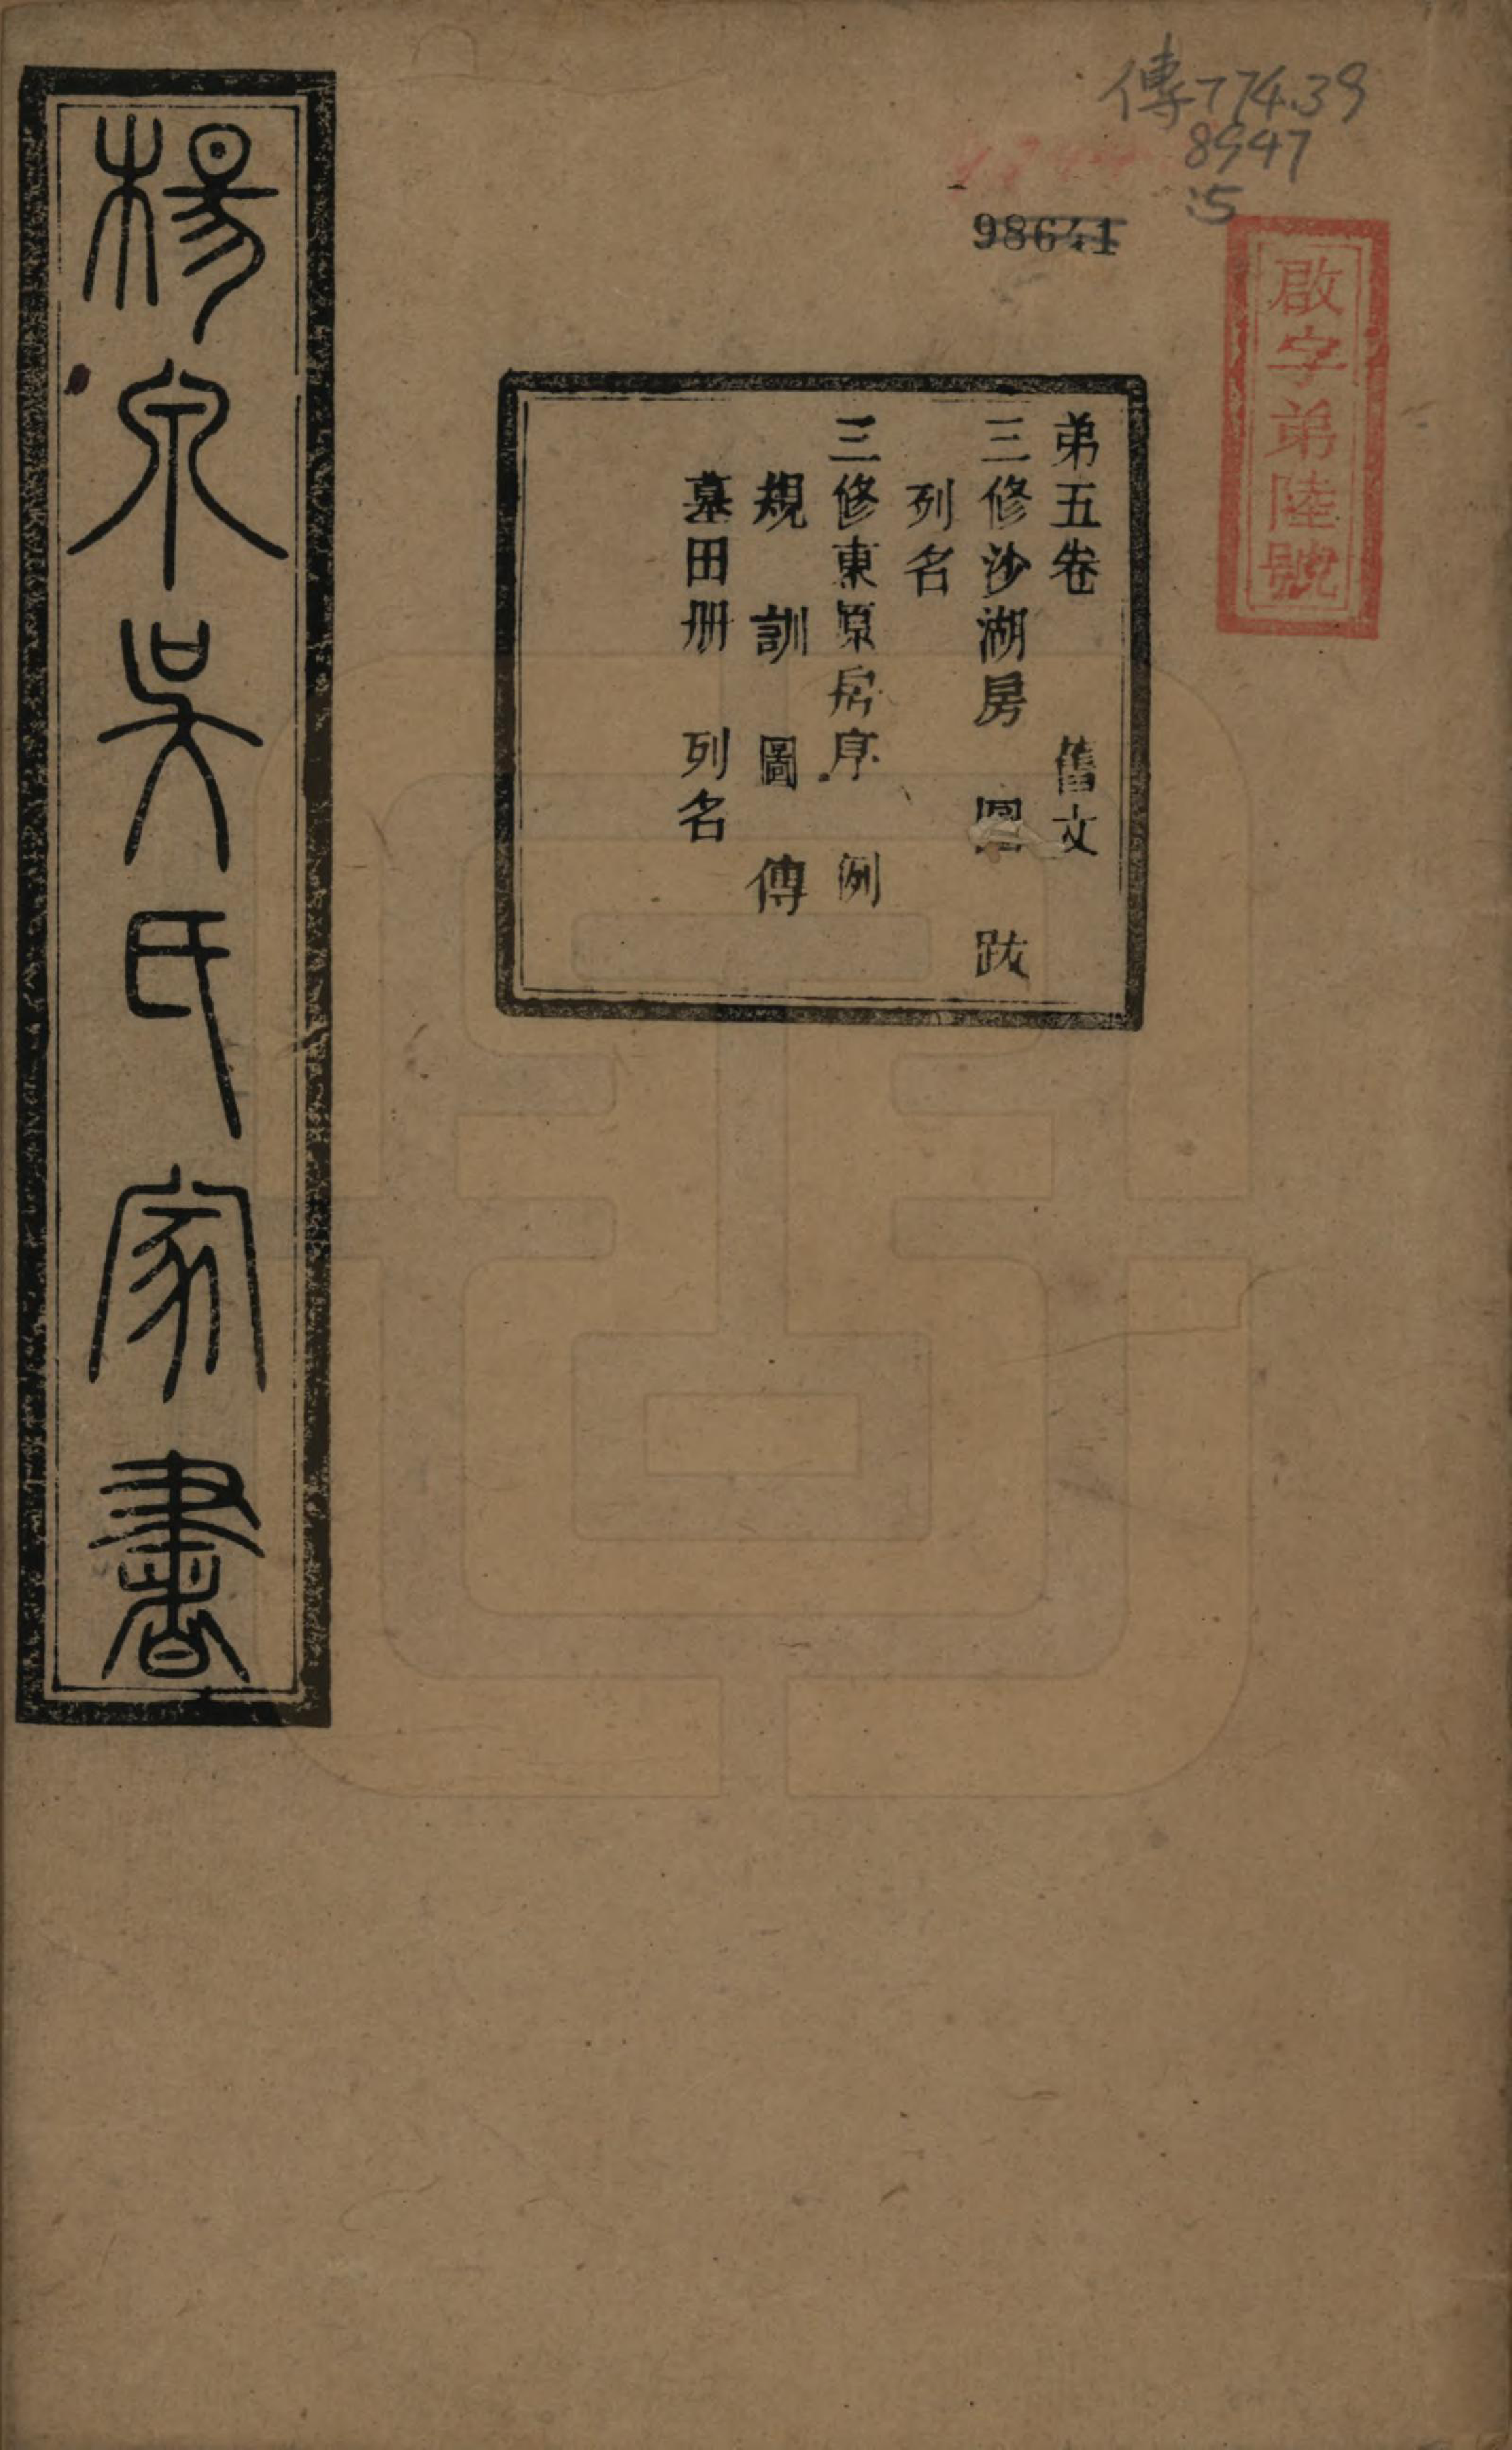 傳774.39
8947
:5
98641
啟字弟陸號
弟五卷 舊文
三修沙湖房 圖 跋
列名
三修東原房序 例
規 訓 圖 傳
墓田册 列名
楊泉吳氏家書